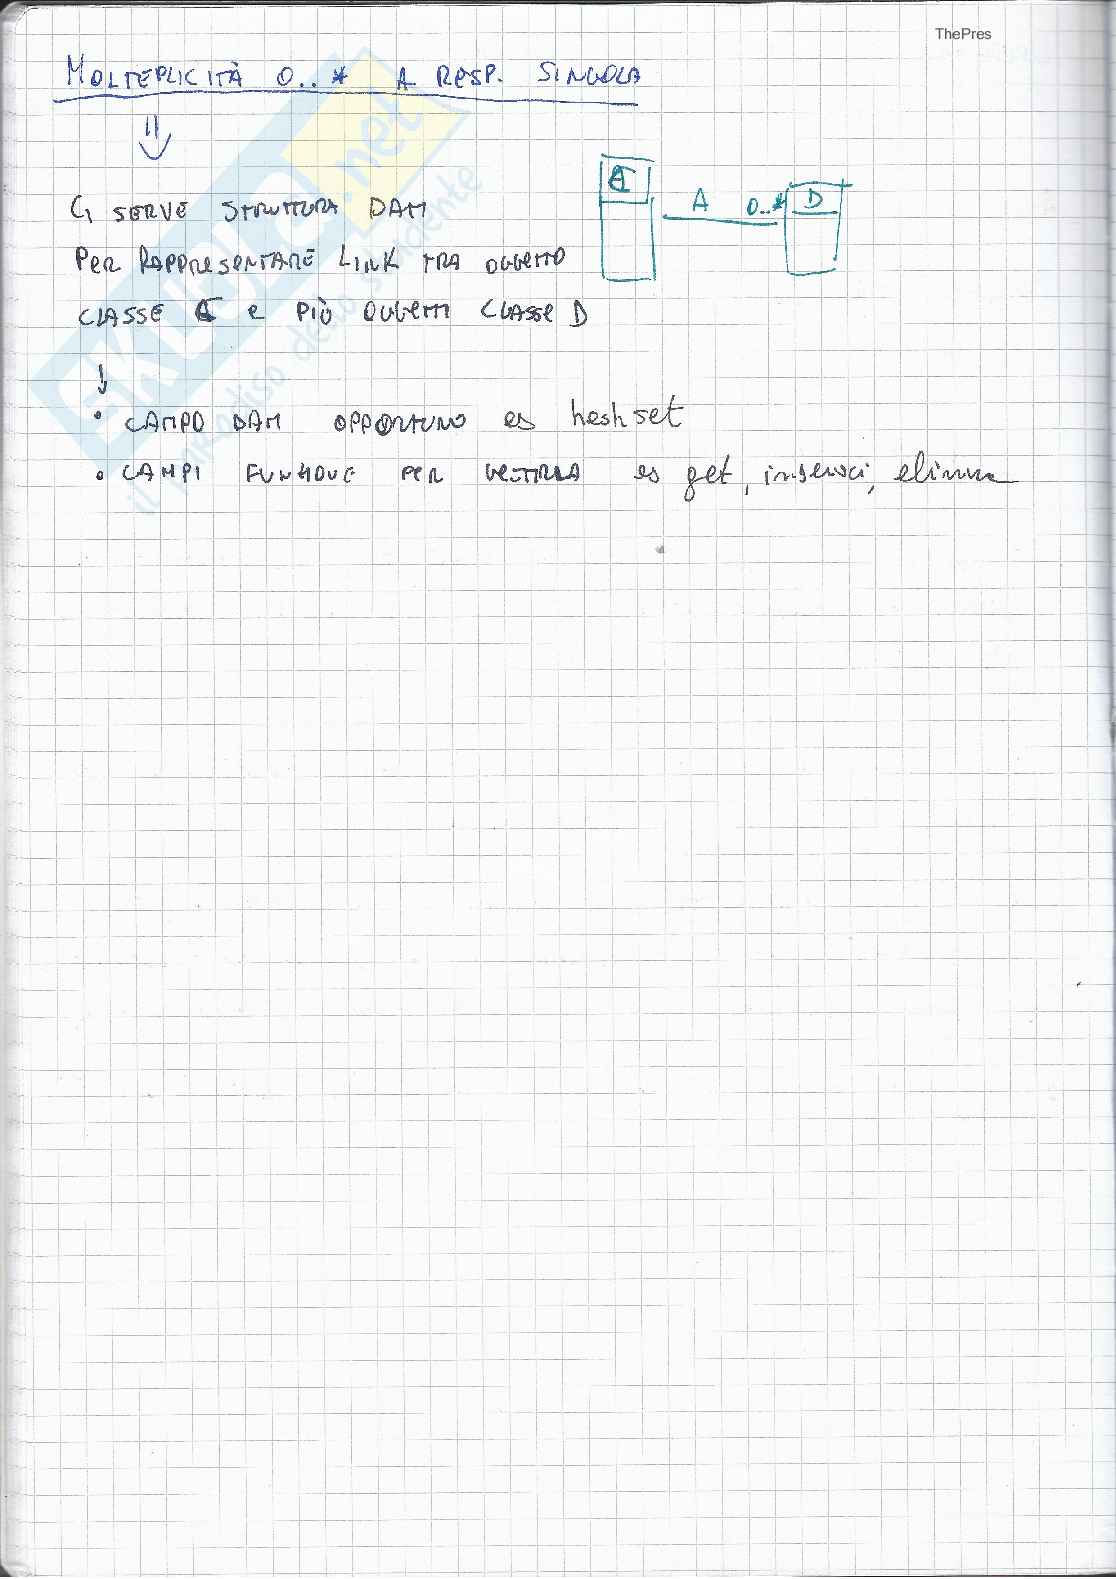 ThePres
MOLTEPLICITÀ 0..* A RESP. SINGOLA
CI SERVE STRUTTURA DATI
PER RAPPRESENTARE LINK TRA OGGETTO
CLASSE C E PIÙ OGGETTI CLASSE D
C
A 0..* D
• CAMPO DATI OPPORTUNO es hashset
• CAMPI FUNZIONE PER GESTIRLA es get, inserisci, elimina
SKUOLA.net
il paradiso dello studente